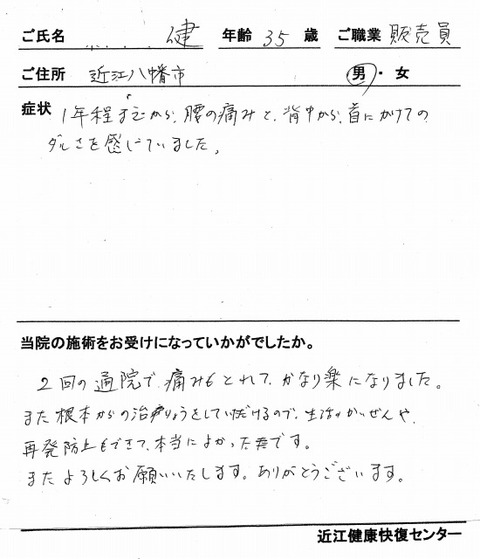 ご氏名 健 年齢 35 歳 ご職業 販売員
ご住所 近江八幡市 男・女
症状 1年程まえから、腰の痛みと、背中から、首にかけての
ダルさを感じていました。
当院の施術をお受けになっていかがでしたか。
2回の通院で、痛みもとれて、かなり楽になりました。
また根本からの治りょうをしていただけるので、生活かいぜんや、
再発防止もできて、本当によかったです。
またよろしくお願いいたします。ありがとうございます。
近江健康快復センター